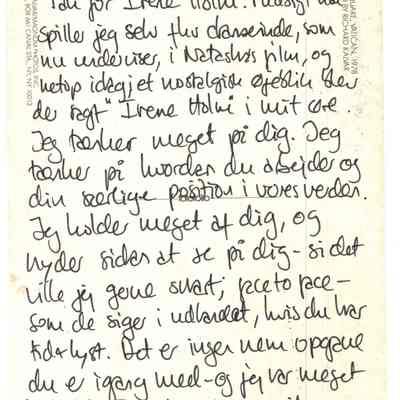 Tak for Irene Holm. Tilfældigvis
spiller jeg selv thv danserinde, som
nu underviser, i Natashas film, og
netop idag i et nostalgisk øjeblik blev
der sagt "Irene Holm i mit øre.
Jeg tænker meget på dig. Jeg
tænker på hvordan du arbejder og
din særlige position i vores verden.
Jeg holder meget af dig, og
nyder siden at se på dig - si det
ville jeg gerne snart; face to face -
som de siger i udlandet, hvis du har
tid + lyst. Det er ingen nem opgave
du er igang med - og jeg var meget
VATICAN, 1978
BY RICHARD KALVAR